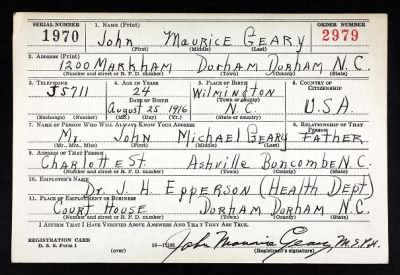 SERIAL NUMBER 1. NAME (Print) ORDER NUMBER
1970 John Maurice Geary 2979
(First) (Middle) (Last)
2. ADDRESS (Print)
1200 Markham Dorham Dorham N.C.
(Number and street or R. F. D. number) (Town) (County) (State)
3. TELEPHONE 4. AGE IN YEARS 5. PLACE OF BIRTH 6. COUNTRY OF CITIZENSHIP
J5711 24 Wilmington
DATE OF BIRTH (Town or county)
August 25 1916 N.C. U.S.A.
(Exchange) (No.) (Mo.) (Day) (Yr.) (State or country)
7. NAME OF PERSON WHO WILL ALWAYS KNOW YOUR ADDRESS 8. RELATIONSHIP OF THAT PERSON
Mr. John Michael Geary Father
(Mr., Mrs., Miss) (First) (Middle) (Last)
9. ADDRESS OF THAT PERSON
Charlotte St Ashville Boncombe N.C.
(Number and street or R. F. D. number) (Town) (County) (State)
10. EMPLOYER'S NAME
Dr. J. H. Epperson (Health Dept)
11. PLACE OF EMPLOYMENT OR BUSINESS
Court House Dorham Dorham N.C.
(Number and street or R. F. D. number) (Town) (County) (State)
I AFFIRM THAT I HAVE VERIFIED ABOVE ANSWERS AND THAT THEY ARE TRUE.
REGISTRATION CARD
D. S. S. Form 1 (over) John Maurice Geary
(Registrant's signature)